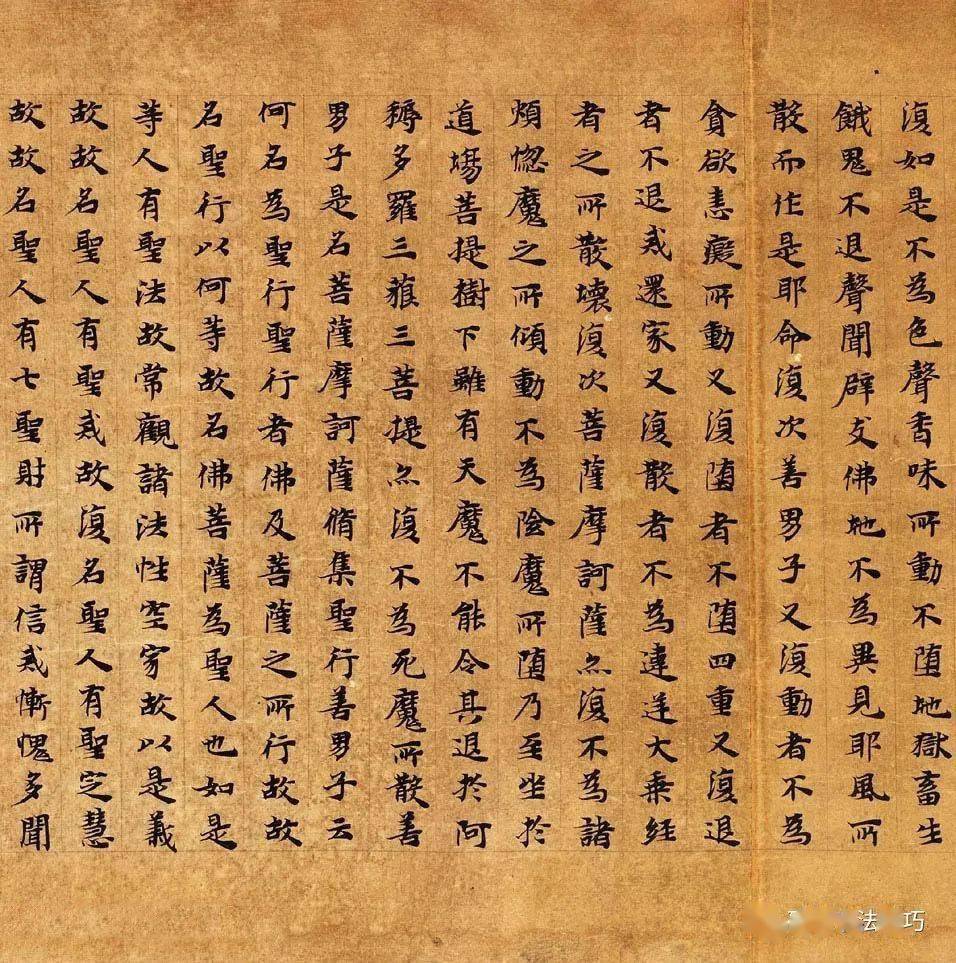 復如是不為色聲香味所動不墮地獄畜生
餓鬼不退聲聞辟支佛地不為異見耶風所
散而作是耶命復次善男子又復動者不為
貪欲恚癡所動又復墮者不墮四重又復退
者不退戒還家又復散者不為違逆大乘經
者之所散壞復次菩薩摩訶薩亦復不為諸
煩惱魔之所傾動不為陰魔所墮乃至坐於
道場菩提樹下雖有天魔不能令其退於阿
耨多羅三藐三菩提亦復不為死魔所散善
男子是名菩薩摩訶薩脩集聖行善男子云
何名為聖行聖行者佛及菩薩之所行故故
名聖行以何等故名佛菩薩為聖人也如是
等人有聖法故常觀諸法性空寂故以是義
故故名聖人有聖戒故復名聖人有聖定慧
故故名聖人有七聖財所謂信戒慚愧多聞
法巧